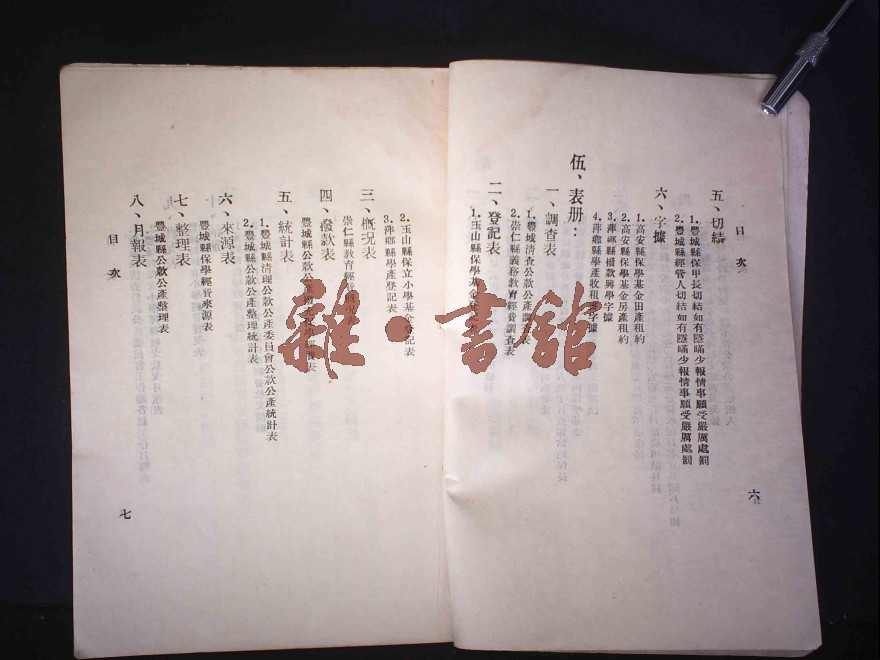 目次
五、切結
1.豐城縣保甲長切結如有隱瞞少報情事願受嚴厲處罰
2.豐城縣經管人切結如有隱瞞少報情事願受嚴厲處罰
六、字據
1.高安縣保學基金田產租約
2.高安縣保學基金房產租約
3.萍鄉縣撥款興學字據
4.萍鄉縣學產收租字據
伍、表册：
一、調查表
1.豐城清查公款公產調查表
2.崇仁縣義務教育經費調查表
二、登記表
1.玉山縣保學基金
六
2.玉山縣保立小學基金登記表
3.萍鄉縣學產登記表
三、概况表
崇仁縣教育經費
四、撥款表
豐城縣公款公產
五、統計表
1.豐城縣清理公款公產委員會公款公產統計表
2.豐城縣公款公產整理統計表
六、來源表
豐城縣保學經費來源表
七、整理表
豐城縣公款公產整理表
八、月報表
目次
七
雜·書館